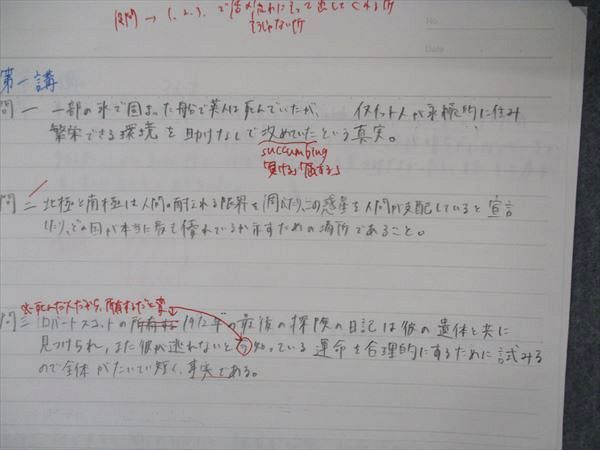 設問 → 1. 2. 3. で
そうじゃない所
No.
Date
第一講
問一 一部の氷で固まった船で英人は死んでいたが、 イヌイット人が永続的に住み
繁栄できる環境を助けなしで攻めていたという真実。
succumbing
「負ける」「屈する」
問二 北極と南極は人間の耐えられる限界を
この惑星を人間が支配していると宣言
したり、どの国が本当に最も優れているか示すための場所であること。
※死んだ人だから、所有するだと変
問三 ロバートスコットの所有する1912年の最後の探険の日記は彼の遺体と共に
見つけられ、また彼が逃れないと今知っている運命を合理的にするために試みる
ので全体がだいたい短く、事実である。